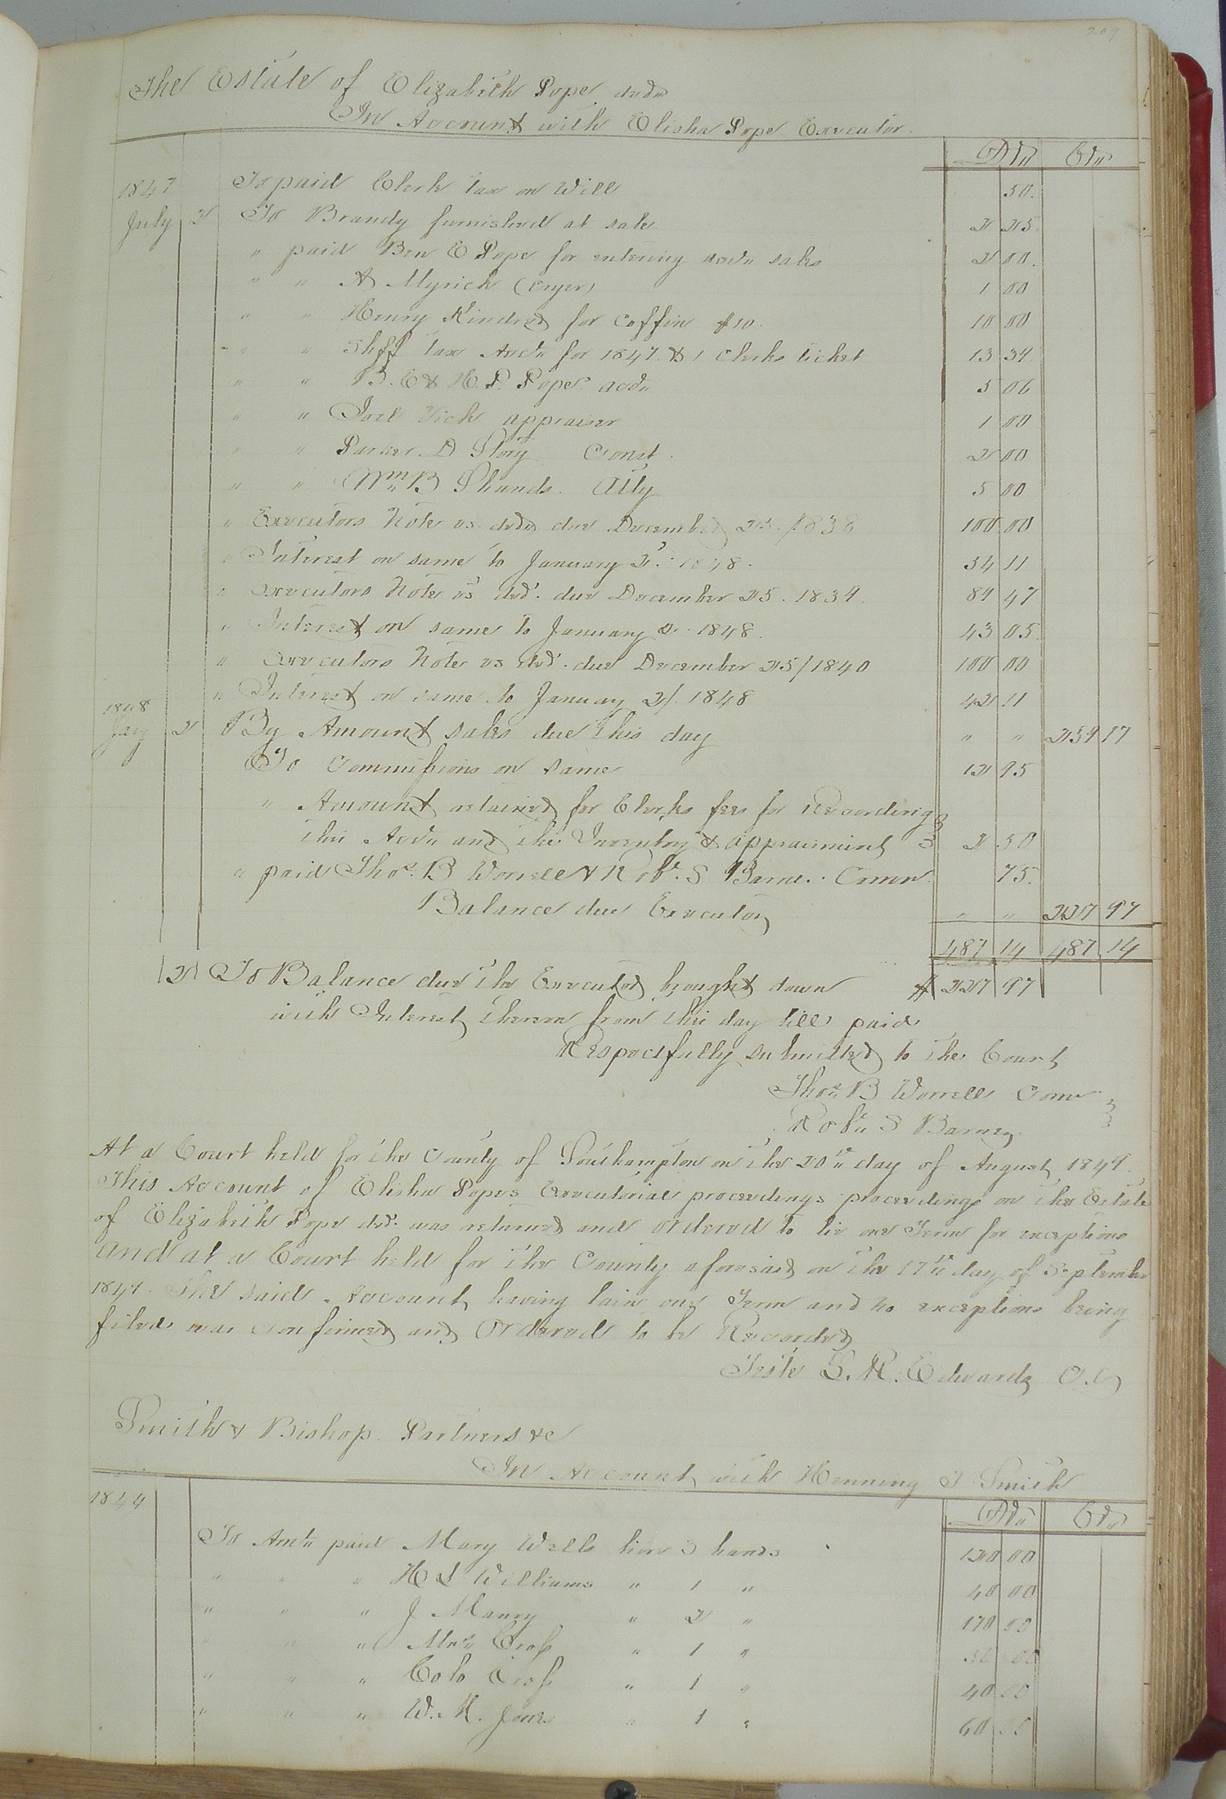 209
The Estate of Elizabeth Pope decd
In Account with Elisha Pope Executor.
Dr Cr
1847 To paid Clerk tax on Will 50.
July 2 To Brandy furnished at sale 2 25
" paid Ben E Pope for entering acct sales 2 00.
" " A Myrick (Cryer) 1 00
" " Henry Kindred for coffin $10. 10 00
" " Shff tax Acct for 1847 & 1 clerks ticket 13 34
" " B. E & H. P. Pope acct 5 06
" " Joel Vick appraiser 1 00
" " Parker D Story Const. 2 00
" " Wm B Shands Atty 5 00
" Executors Note vs decd due December 25. 1838 100 00
" Interest on same to January 2. 1848. 54 11
" Executors Note vs decd. due December 25. 1839. 89 47
" Interest on same to January 2. 1848. 43 05
" Executors Note vs decd. due December 25/1840 100 00
" Interest on same to January 2/. 1848 42 11
1848
Jany 2 By Amount sales due this day " " 259 17
To Commissions on same 12 95
" Amount retained for Clerks fees for Recording
this Acct and the Inventory & appraisement 2 50
" paid Thos. B Worrell & Robt. S Barnes Comm. 75.
Balance due Executor " " 227 97
487 14 487 14
2 To Balance due the Executor brought down $ 227 97
with Interest thereon from this day till paid
Respectfully submitted to the Court
Thos B Worrell Comr
Robt S Barnes
At a Court held for the County of Southampton on the 20th day of August 1849.
This Account of Elisha Popes Executorial proceedings proceedings on the Estate
of Elizabeth Pope decd. was returned and ordered to lie one Term for exceptions
And at a Court held for the County aforesaid on the 17th day of September
1849. The said Account having lain one Term and no exceptions being
filed was confirmed and Ordered to be Recorded
Teste L. R. Edwards C.C
Smith & Bishop Partners &c
In Account with Henning T Smith
1844 Dr Cr
To Amt paid Mary Wells hire 3 hands 120 00
" " " H S Williams " 1 " 40 00
" " " J Maury " 2 " 170 00
" " " Mrs Cross " 1 " 50 00
" " " Colo Cross " 1 " 40 00
" " " W. H. Jones " 1 " 60 00